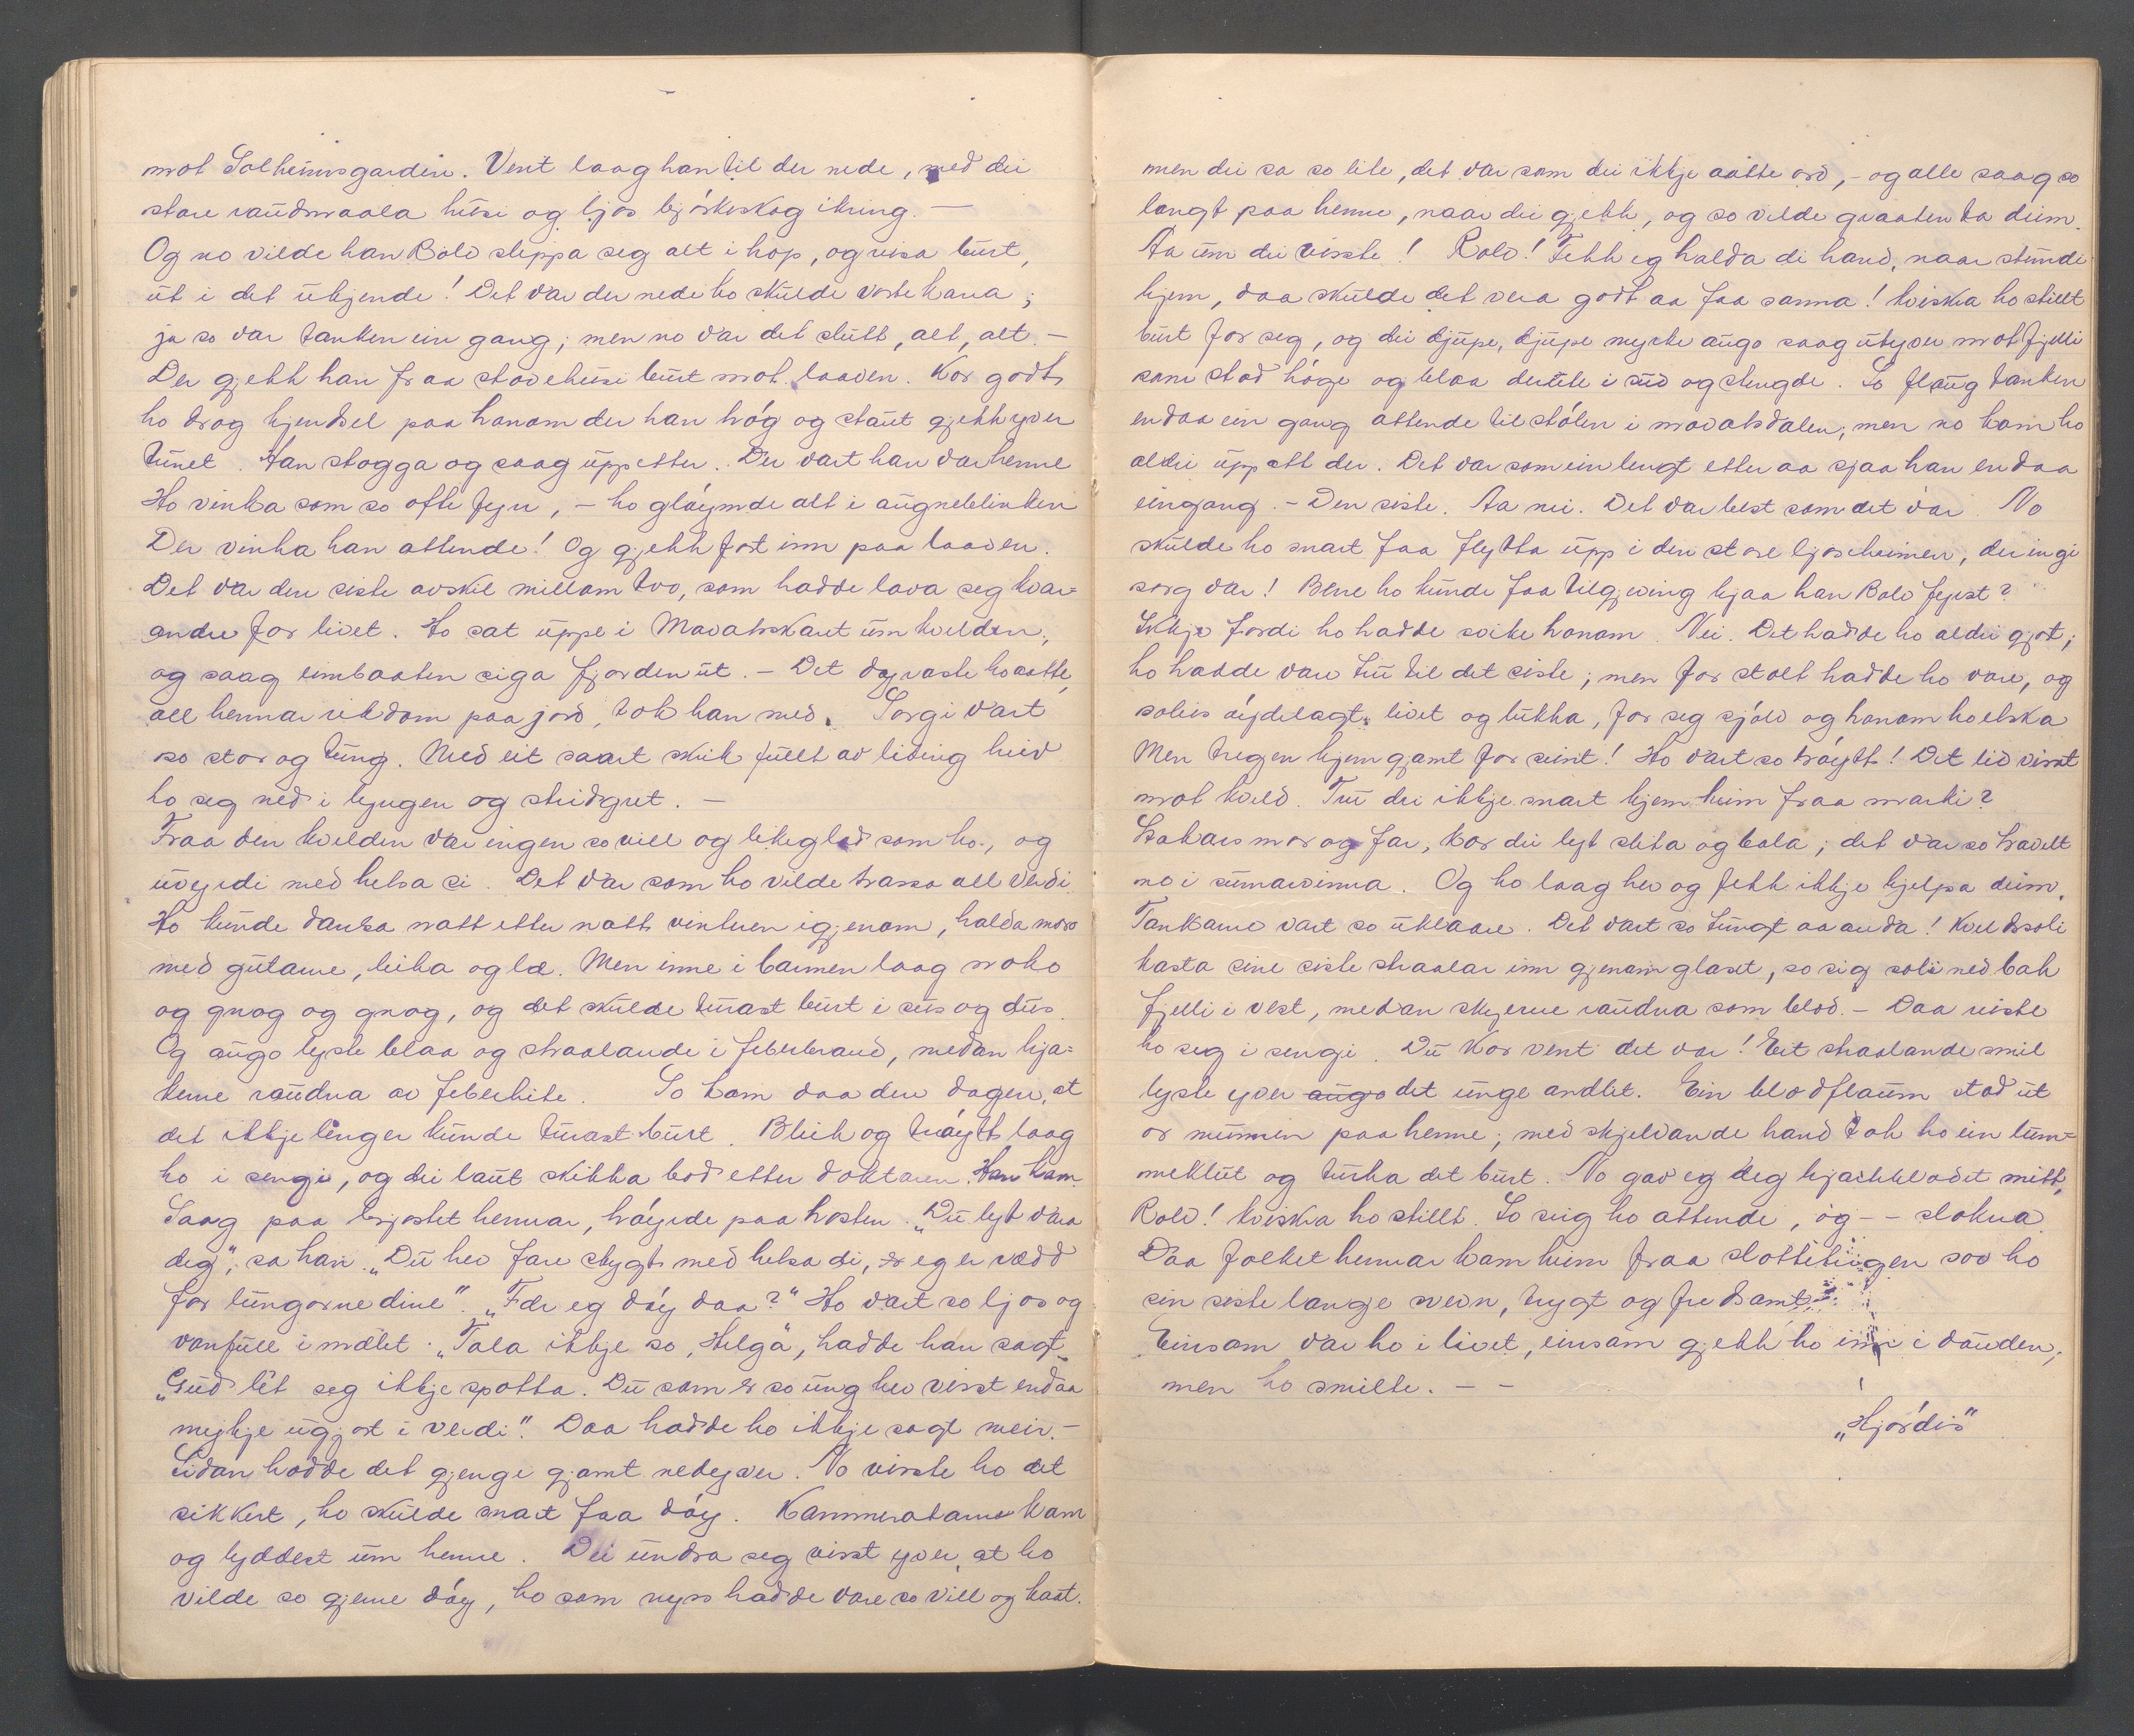 mot Solheimsgarden. Vent laag han til der nede, med dei
store raudmaala husi og ljos bjørkeskog ikring. —
Og no vilde han Rolv sleppa seg alt i hop, og reisa burt,
ut i det ukjende! Det var der nede ho skulde vorte kona;
ja so var tanken ein gang; men no var det slutt, alt, alt. —
Der gjekk han fraa stovehusi burt mot laaven. Kor godt
ho drog kjendsel paa honom der han høg og staut gjekk yver
tunet. Han stogga og saag uppetter. Der vart han var henne
Ho vinka som so ofte fyrr, — ho gløymde alt i augneblinken
Der vinka han attende! Og gjekk fort inn paa laaven.
Det var den siste avskil millom tvo, som hadde lova seg kvar-
andre for livet. Ho sat uppe i Movatskaret um kvelden,
og saag eimbaaten siga fjorden ut. — Det dyraste ho aatte,
all hennar rikdom paa jord, tok han med. Sorgi vart
so stor og tung. Med eit saart skrik fullt av liding heiv
ho seg ned i lyngen og stridgret. —
Fraa den kvelden var ingen so vill og likeglad som ho, og
uvyrdi med helsa si. Det var som ho vilde trassa all verdi.
Ho kunde dansa natt etter natt vinteren igjenom, halda moro
med gutarne, leika og læ. Men inne i barmen laag noko
og gnog og gnog, og det skulde turast burt i sus og dus.
Og augo lyste blaa og straalande i feberbrand, medan kja-
kerne raudna av feberhite. So kom daa den dagen, at
det ikkje lenger kunde turast burt. Bleik og trøytt laag
ho i sengi, og dei laut skikka bod etter doktaren. Han kom.
Saag paa brjostet hennar, høyrde paa hosten. „Du lyt vara
deg", sa han. „Du hev fare stygt med helsa di, eg er rædd
for lungorne dine". „Fær eg døy daa?" Ho vart so ljos og
vonfull i mælet. „Tala ikkje so, Helga", hadde han sagt.
„Gud lèt seg ikkje spotta. Du som er so ung hev visst endaa
mykje ugjort i verdi". Daa hadde ho ikkje sagt meir. —
Sidan hadde det gjenge jamt nedyver. No visste ho det
sikkert, ho skulde snart faa døy. Kammeratarne kom
og lyddest um henne. Dei undra seg visst yver, at ho
vilde so gjerne døy, ho som nyss hadde vore so vill og kaat.
men dei sa so lite, det var som dei ikkje aatte ord, — og alle saag so
langt paa henne, naar dei gjekk, og so vilde graaten ta deim.
Aa um dei visste! Rolv! Fekk eg halda di hand, naar stundi
kjem, daa skulde det vera godt aa faa samna! kviskra ho stillt
burt for seg, og dei djupe, djupe myrke augo saag utyver mot fjelli
som stod høge og blaa derute i sud og stengde. So flaug tanken
endaa ein gang attende til stølen i movatsdalen; men no kom ho
aldri upp att der. Det var som ein lengt etter aa sjaa han endaa
eingang. — Den siste. Aa nei. Det var best som det var. No
skulde ho snart faa flytta upp i den store ljosheimen, der ingi
sorg var! Berre ho kunde faa tilgjeving hjaa han Rolv fyrst?
Ikkje fordi ho hadde svike honom. Nei. Det hadde ho aldri gjort;
ho hadde vore tru til det siste; men for stolt hadde ho vore, og
soleis øydelagt livet og lukka, for seg sjølv og honom ho elska
Men tregen kjem jamt for seint! Ho vart so trøytt! Det leid visst
mot kveld. Tru dei ikkje snart kjem heim fraa marki?
Stakars mor og far, kor dei lyt slita og bala; det var so travelt
no i sumarvinna. Og ho laag her og fekk ikkje hjelpa deim.
Tankarne vart so uklaare. Det vart so tungt aa anda! Kveldsoli
kasta sine siste straalar inn gjenom glaset, so seig soli ned bak
fjelli i vest, medan skyerne raudna som blod. — Daa reiste
ho seg i sengi. Du kor vent det var! Eit straalande smil
lyste yver augo det unge andlit. Ein blodflaum stod ut
or munnen paa henne; med skjelvande hand tok ho ein lum-
meklut og turka det burt. No gav eg deg hjarteblodet mitt,
Rolv! kviskra ho stillt. So seig ho attende, og — — slokna.
Daa folket hennar kom heim fraa slotteteigen sov ho
sin siste lange svevn, trygt og fredsamt.
Einsom var ho i livet, einsam gjekk ho inn i dauden;
men ho smilte. — —
„Hjørdis"